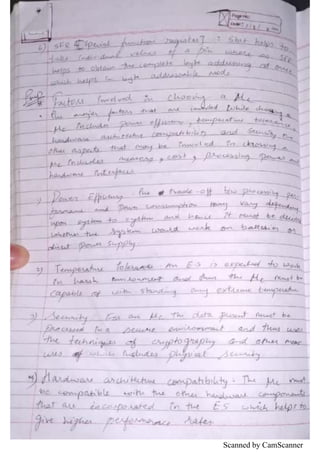 Page No:
b) SFR [Special function register] : SBIT helps to
take individual values of a pin where SFR
helps to obtain the complete byte addressing at once
which helps in byte addressable mode
Factors Involved in choosing a μc
The major factors that are involved while choosing a
μc includes Power efficiency, temperature tolerance,
hardware architecture compatibility and Security. The
other aspects that may be involved in choosing a
μc includes memory, cost, processing power and
hardware interface.
1) Power Efficiency The trade-off b/w processing per-
formance and power consumption may vary depending
upon system to system and hence it must be decided
whether the system would work on batteries or
direct power supply.
2) Temperature Tolerance An E·S is expected to work
in harsh environment and thus the μc must be
capable of with standing any extreme temperature
3) Security For an μc the data present must be
processed in a secure environment and thus uses
the techniques of cryptography and other meas
ures which includes physical security
4) Hardware architecture compatibility. The μc must
be compatible with the other hardware components
that are incorporated in the E·S which helps to
give higher performance rates
Scanned by CamScanner